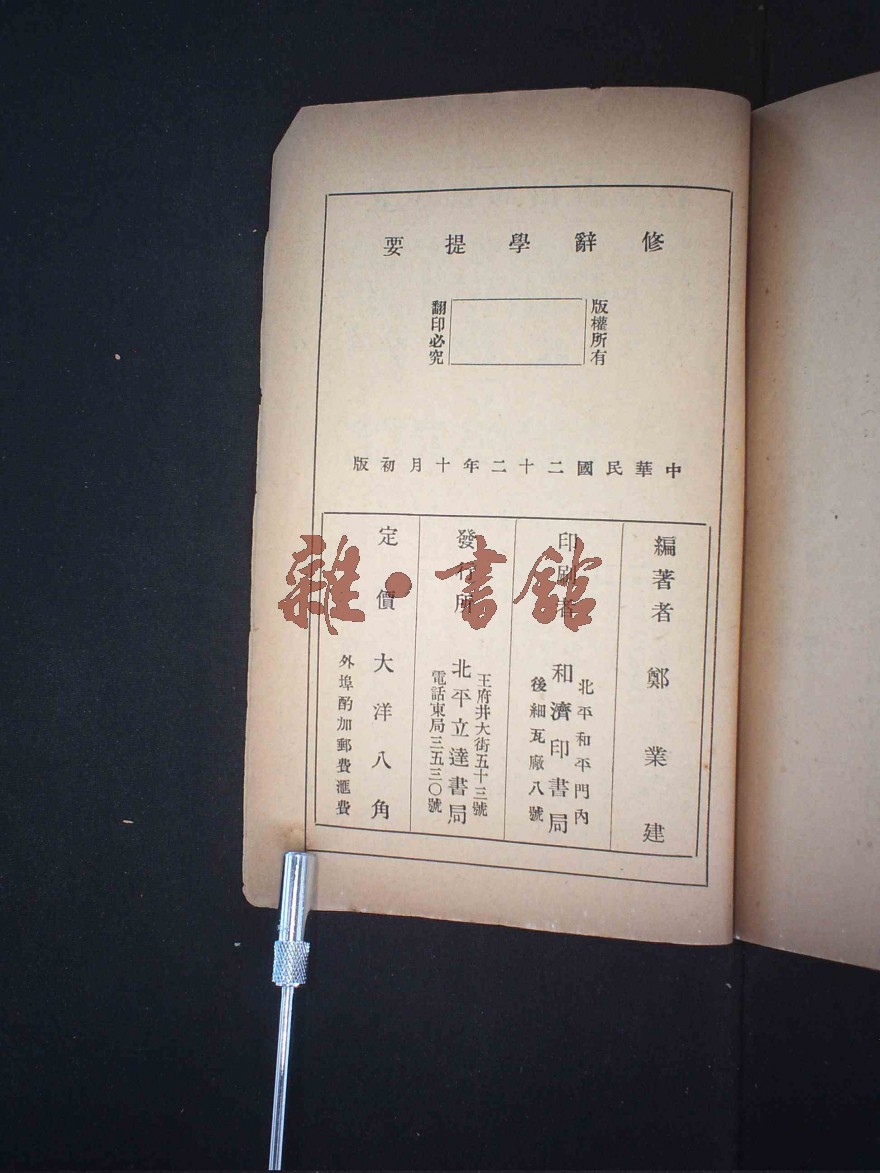 修辭學提要
版權所有
翻印必究
中華民國二十二年十月初版
編著者 鄭業建
印刷者
北平和平門內
和濟印書局
後細瓦廠八號
發行所
王府井大街五十三號
北平立達書局
電話東局三五三〇號
定價 大洋八角
外埠酌加郵費滙費
雜·書館